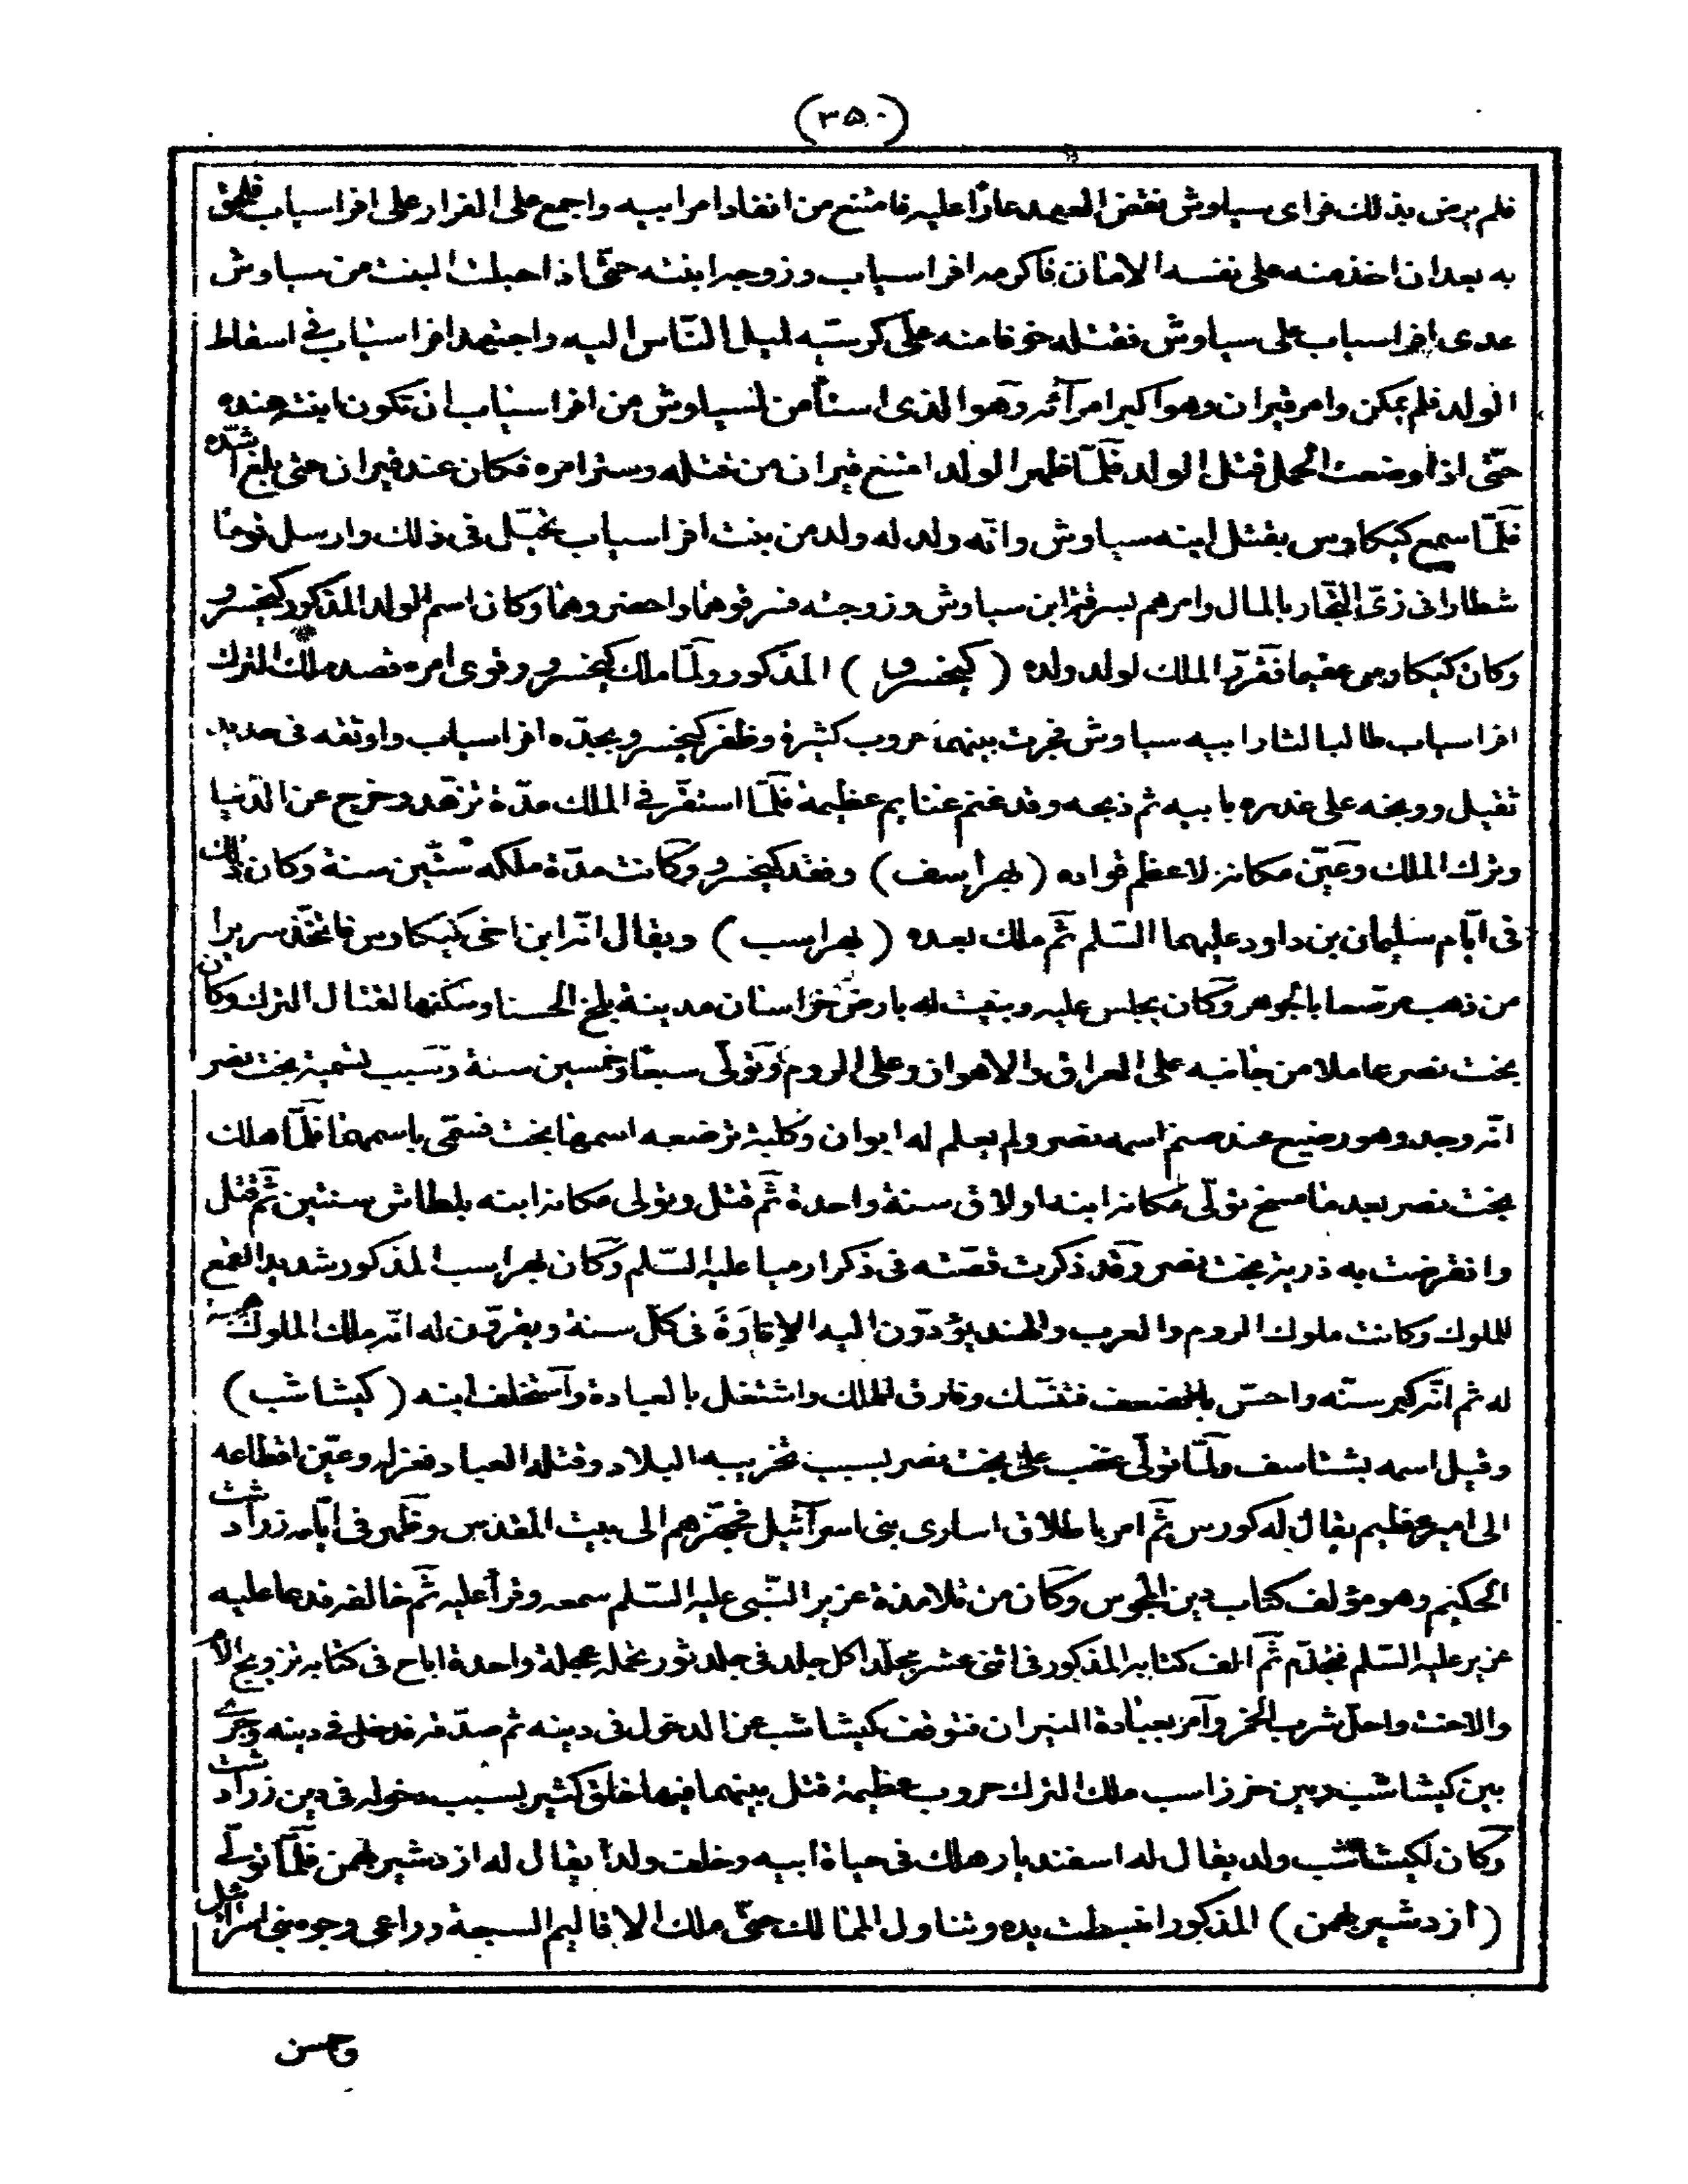 (٣٥٠)
فلم يرض بذلك فراى سياوش نقض العهد عارا عليه فامتنع من انفاد امر ابيه واجمع على الفرار على افراسياب فلحق
به بعد ان اخذ منه على نفسه الامان فاكرمه افراسياب وزوجه ابنته حتّى اذا حبلت البنت من سياوش
عدى افراسياب على سياوش فقتله خوفا منه على كرسيّه لميل النّاس اليه واجتهد افراسياب في اسقاط
الولد فلم يمكن وامر فيران وهو اكبر امرآئه وهو الذى استأمن لسياوش من افراسياب ان تكون ابنته عنده
حتّى اذا وضعت الحمل قتل الولد فلمّا ظهر الولد امتنع فيران من قتله وستر امره فكان عند فيران حتى بلغ اشدّه
فلمّا سمع كيكاوس بقتل ابنه سياوش وانّه ولد له ولد من بنت افراسياب تحيّل فى ذلك وارسل قوما
شطارا فى زىّ التجّار بالمال وامرهم بسرقة ابن سياوش وزوجته فسرقوهما واحضروهما وكان اسم الولد المذكور كيخسرو
وكان كيكاوس عقيما فقرّر الملك لولد ولده (كيخسرو) المذكور ولمّا ملك كيخسرو وقوى امره قصد ملك الترك
افراسياب طالبا لثار ابيه سياوش فجرت بينهما حروب كثيرة وظفر كيخسرو بجدّه افراسياب واوثقه فى حديد
ثقيل ووبخه على غدره بابيه ثم ذبحه وقد غنم غنايم عظيمة فلمّا استقرّ في الملك مدّة تزهّد وخرج عن الدّنيا
وترك الملك وعيّن مكانه لاعظم قواده (لهراسف) وفقد كيخسرو وكانت مدّة ملكه ستّين سنة وكان ذلك
فى ايّام سليمان بن داود عليهما السّلم ثمّ ملك بعده (لهراسب) ويقال انّه ابن اخى كيكاوس فاتّخذ سريرا
من ذهب مرصعا بالجوهر وكان يجلس عليه وبنيت له بارض خراسان مدينة بلخ الحسنا وسكنها لقتال الترك وكان
بخت نصر عاملا من جانبه على العراق والاهواز وعلى الروم وتولّى سبعا وخمسين سنة وسبب تسمية بخت نصر
انّه وجد وهو رضيع عند صنم اسمه نصر ولم يعلم له ابوان وكلبة ترضعه اسمها بخت فسمّى باسمهما فلمّا هلك
بخت نصر بعد ما مسخ تولّى مكانه ابنه اولاق سنة واحدة ثمّ قتل وتولى مكانه ابنه بلطاش سنتين ثمّ قتل
وانقرضت به ذرية بخت نصر وقد ذكرت قصّته فى ذكر ارميا عليه السّلم وكان لهراسب المذكور شديد القمع
للملوك وكانت ملوك الروم والعرب والهند يؤدّون اليه الاِتاوَةَ فى كلّ سنة ويقرّون له انّه ملك الملوك هيبة
له ثم انّه كبر سنّه واحسّ بالضعف فتنسّك وفارق الملك واشتغل بالعبادة واستخلف ابنه (كيشاشب)
وقيل اسمه بشتاسف ولمّا تولّى غضب على بخت نصر بسبب تخريبه البلاد وقتله العباد فعزله وعيّن اقطاعه
الى امير عظيم يقال له كورس ثمّ امر باطلاق اسارى بنى اسرآئيل فجهّزهم الى بيت المقدس وظهر فى ايّامه زرادشت
الحكيم وهو مؤلف كتاب دين المجوس وكان من تلامذة عزير النّبى عليه السّلم سمعه وقرأ عليه ثمّ خالفه فدعا عليه
عزير عليه السّلم فتجذّم ثمّ الف كتابه المذكور فى اثنى عشر مجلّدا كل جلد فى جلد ثور تحمله عجلة واحدة اباح فى كتابه تزويج الام
والاخت واحلّ شرب الخمر وآمر بعبادة النيران فتوقف كيشاشب عن الدخول فى دينه ثم صدّقه فدخل فى دينه وجرى
بين كيشاشب وبين خرزاسب ملك الترك حروب عظيمة قتل بينهما فيها خلق كثير بسبب دخوله فى دين زرادشت
وكان لكيشاشب ولد يقال له اسفنديار هلك فى حياة ابيه وخلف ولدا يقال له ازدشير بهمن فلمّا تولّى
(ازدشير بهمن) المذكور انبسطت يده وتناول الممالك حتّى ملك الاقاليم السبعة وراعى وجوه بنى اسرائيل
وحسن